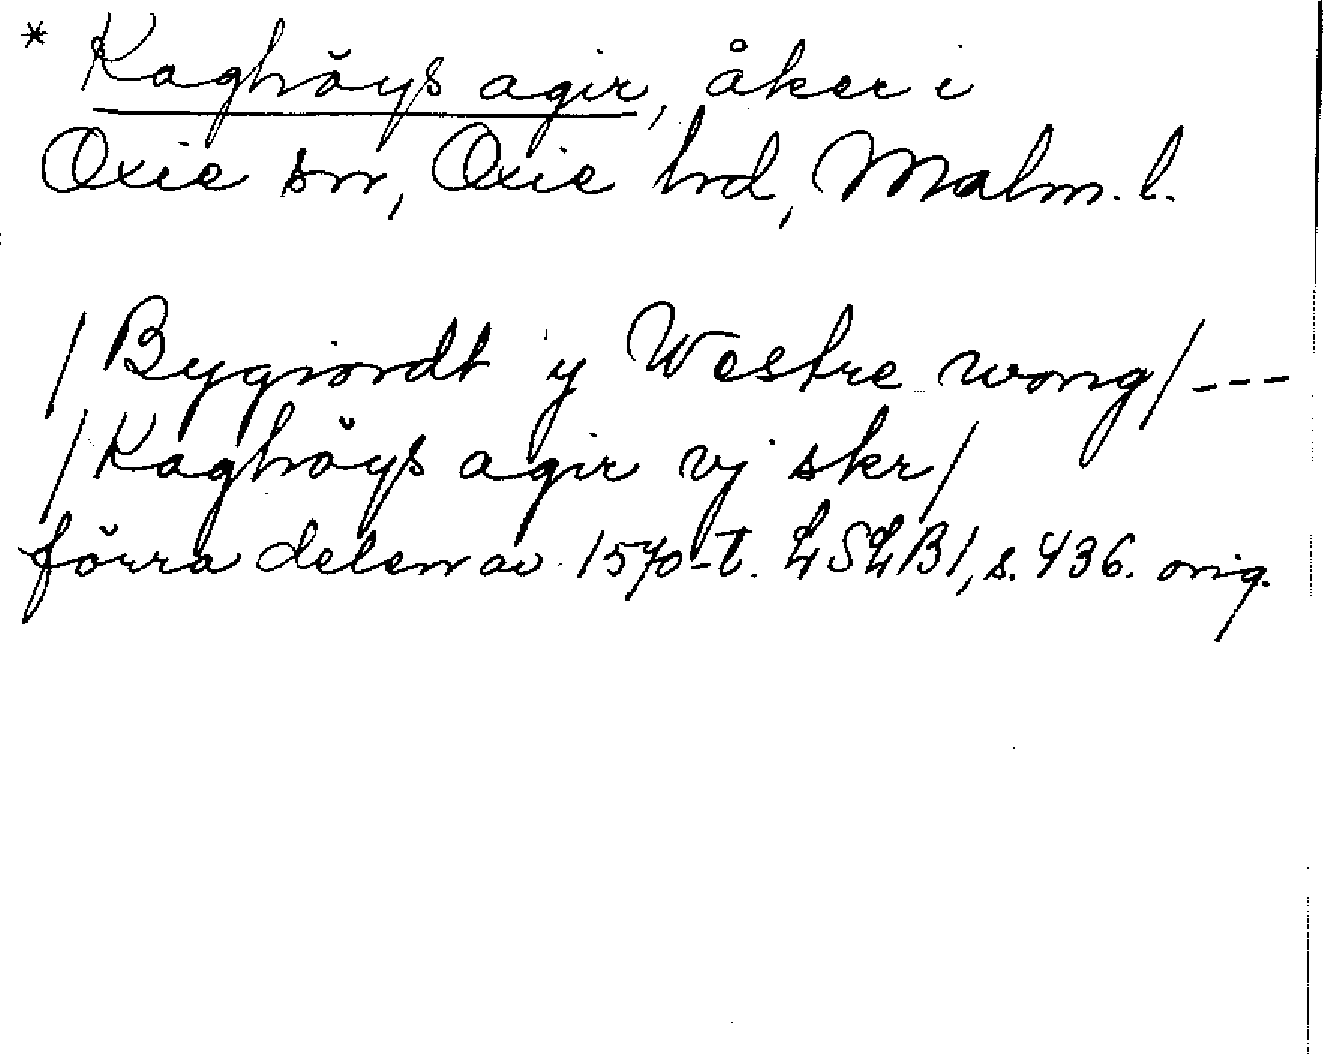 * Kaghöys agir, åker i
Oxie sn, Oxie hd, Malm. l.
/Bygiordt y Westre wong/ ---
/Kaghöys agir vj skr/
förra delen av 1570-t. LSLB1, s. 436. orig.